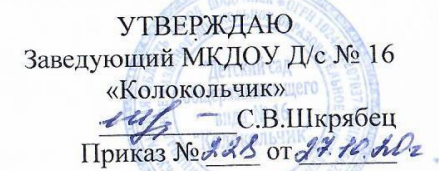 УТВЕРЖДАЮ
Заведующий МКДОУ Д/с № 16
«Колокольчик»
С.В.Шкрябец
Приказ № 225 от 27.10.20г.